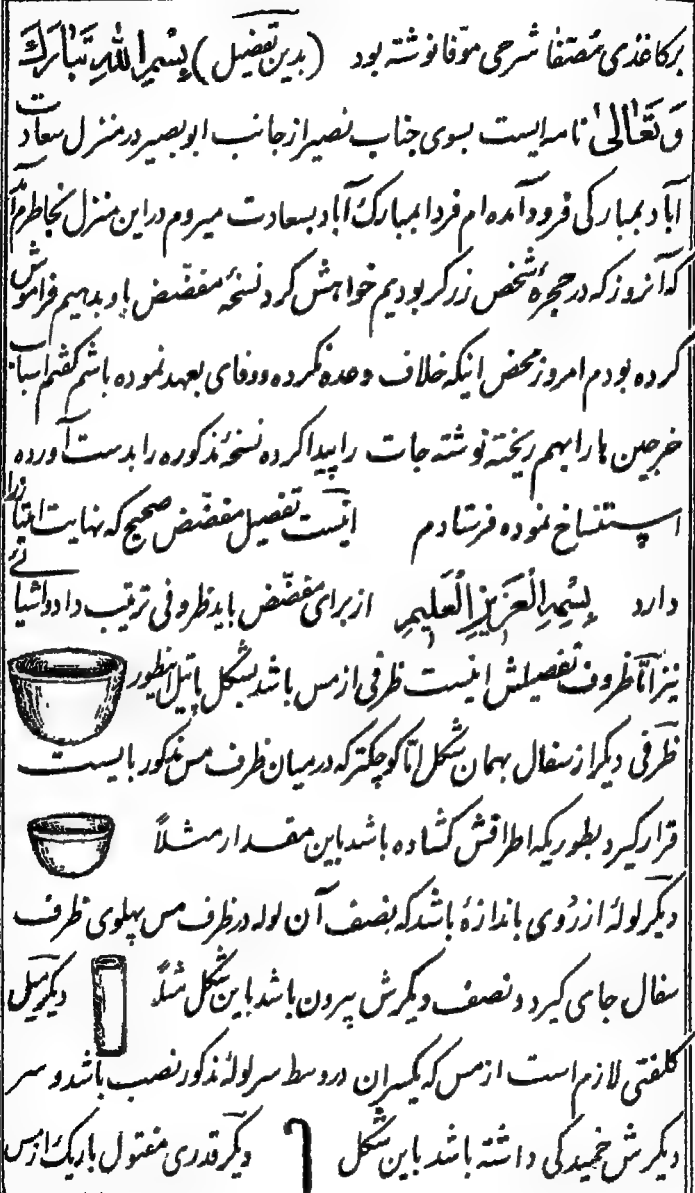 برکاغذی مُصَفّا شرحی موّفا نوشته بود (بدین تفضیل) بِسْمِ اللهِ تَبٰارَکَ
وَتَعٰالیٰ نامه ایست بسوی جناب نصیر از جانب ابوبصیر در منزل سعادت
آباد بمبارکی فرود آمده ام فردا بمبارک آباد بسعادت میروم در این منزل بخاطرم آمد
که آنروز که در حجرهٔ شخص زرگر بودیم خواهش کرد نسخهٔ مفضّض باو بدهیم فراموش
کرده بودم امروز محض اینکه خلاف وعده نکرده و وفای بعهد نموده باشم گفتم اسباب
خرجین ها را بهم ریخته نوشته جات را پیدا کرده نسخهٔ مذکوره را بدست آورده
استنساخ نموده فرستادم اینست تفصیل مفضّض صحیح که نهایت امتیاز را
دارد بِسْمِ الْعَزِیزِ الْعَلِیمِ از برای مفضّض باید ظروفی ترتیب داد و اشیائی
نیز امّا ظروف تفصیلش اینست ظرفی از مس باشد بشکل پاتیل اینطور
ظرفی دیگر از سفال بهمان شکل امّا کوچکتر که در میان ظرف مس مذکور بایست
قرار گیرد بطوریکه اطرافش گشاده باشد باین مقدار مثلاً
دیگر لولهٔ از رُوی باندازهٔ باشد که نصف آن لوله در ظرف مس پهلوی ظرف
سفال جای گیرد و نصف دیگرش بیرون باشد باین شکل مثلاً دیگر میل
کلفتی لازم است از مس که یکسران در وسط سر لولهٔ مذکور نصب باشد و سر
دیگرش خمیدگی داشته باشد باین شکل دیگر قدری مفتول باریک از مس